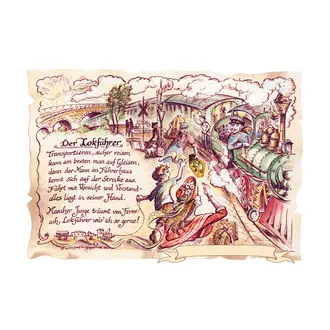 Der Lokführer
Transportieren, sicher reisen
kann am besten man auf Gleisen,
denn der Mann im Führerhaus
kennt sich auf der Strecke aus.
Fährt mit Vorsicht und Verstand –
alles liegt in seiner Hand.
Mancher Junge träumt von Ferne –
ach, Lokführer wär' ich so gerne!